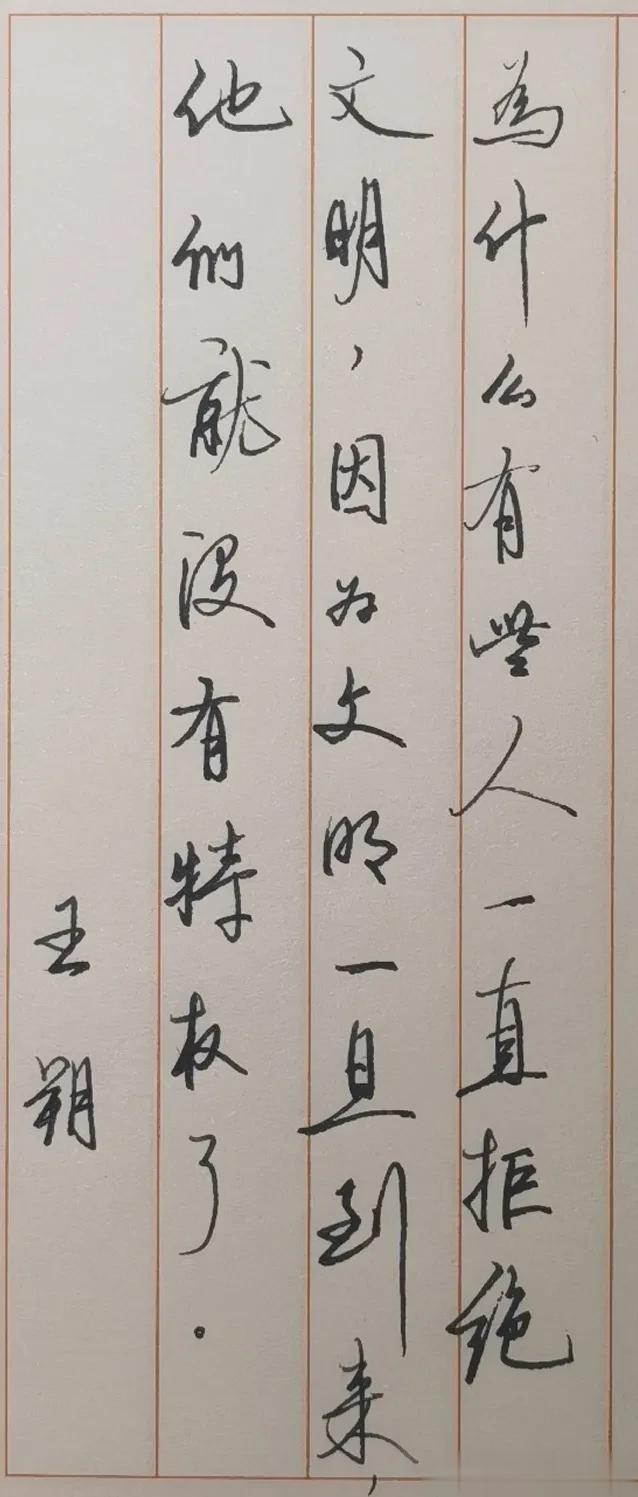 為什么有些人一直拒绝
文明，因为文明一旦到来，
他们就没有特权了。
王朔